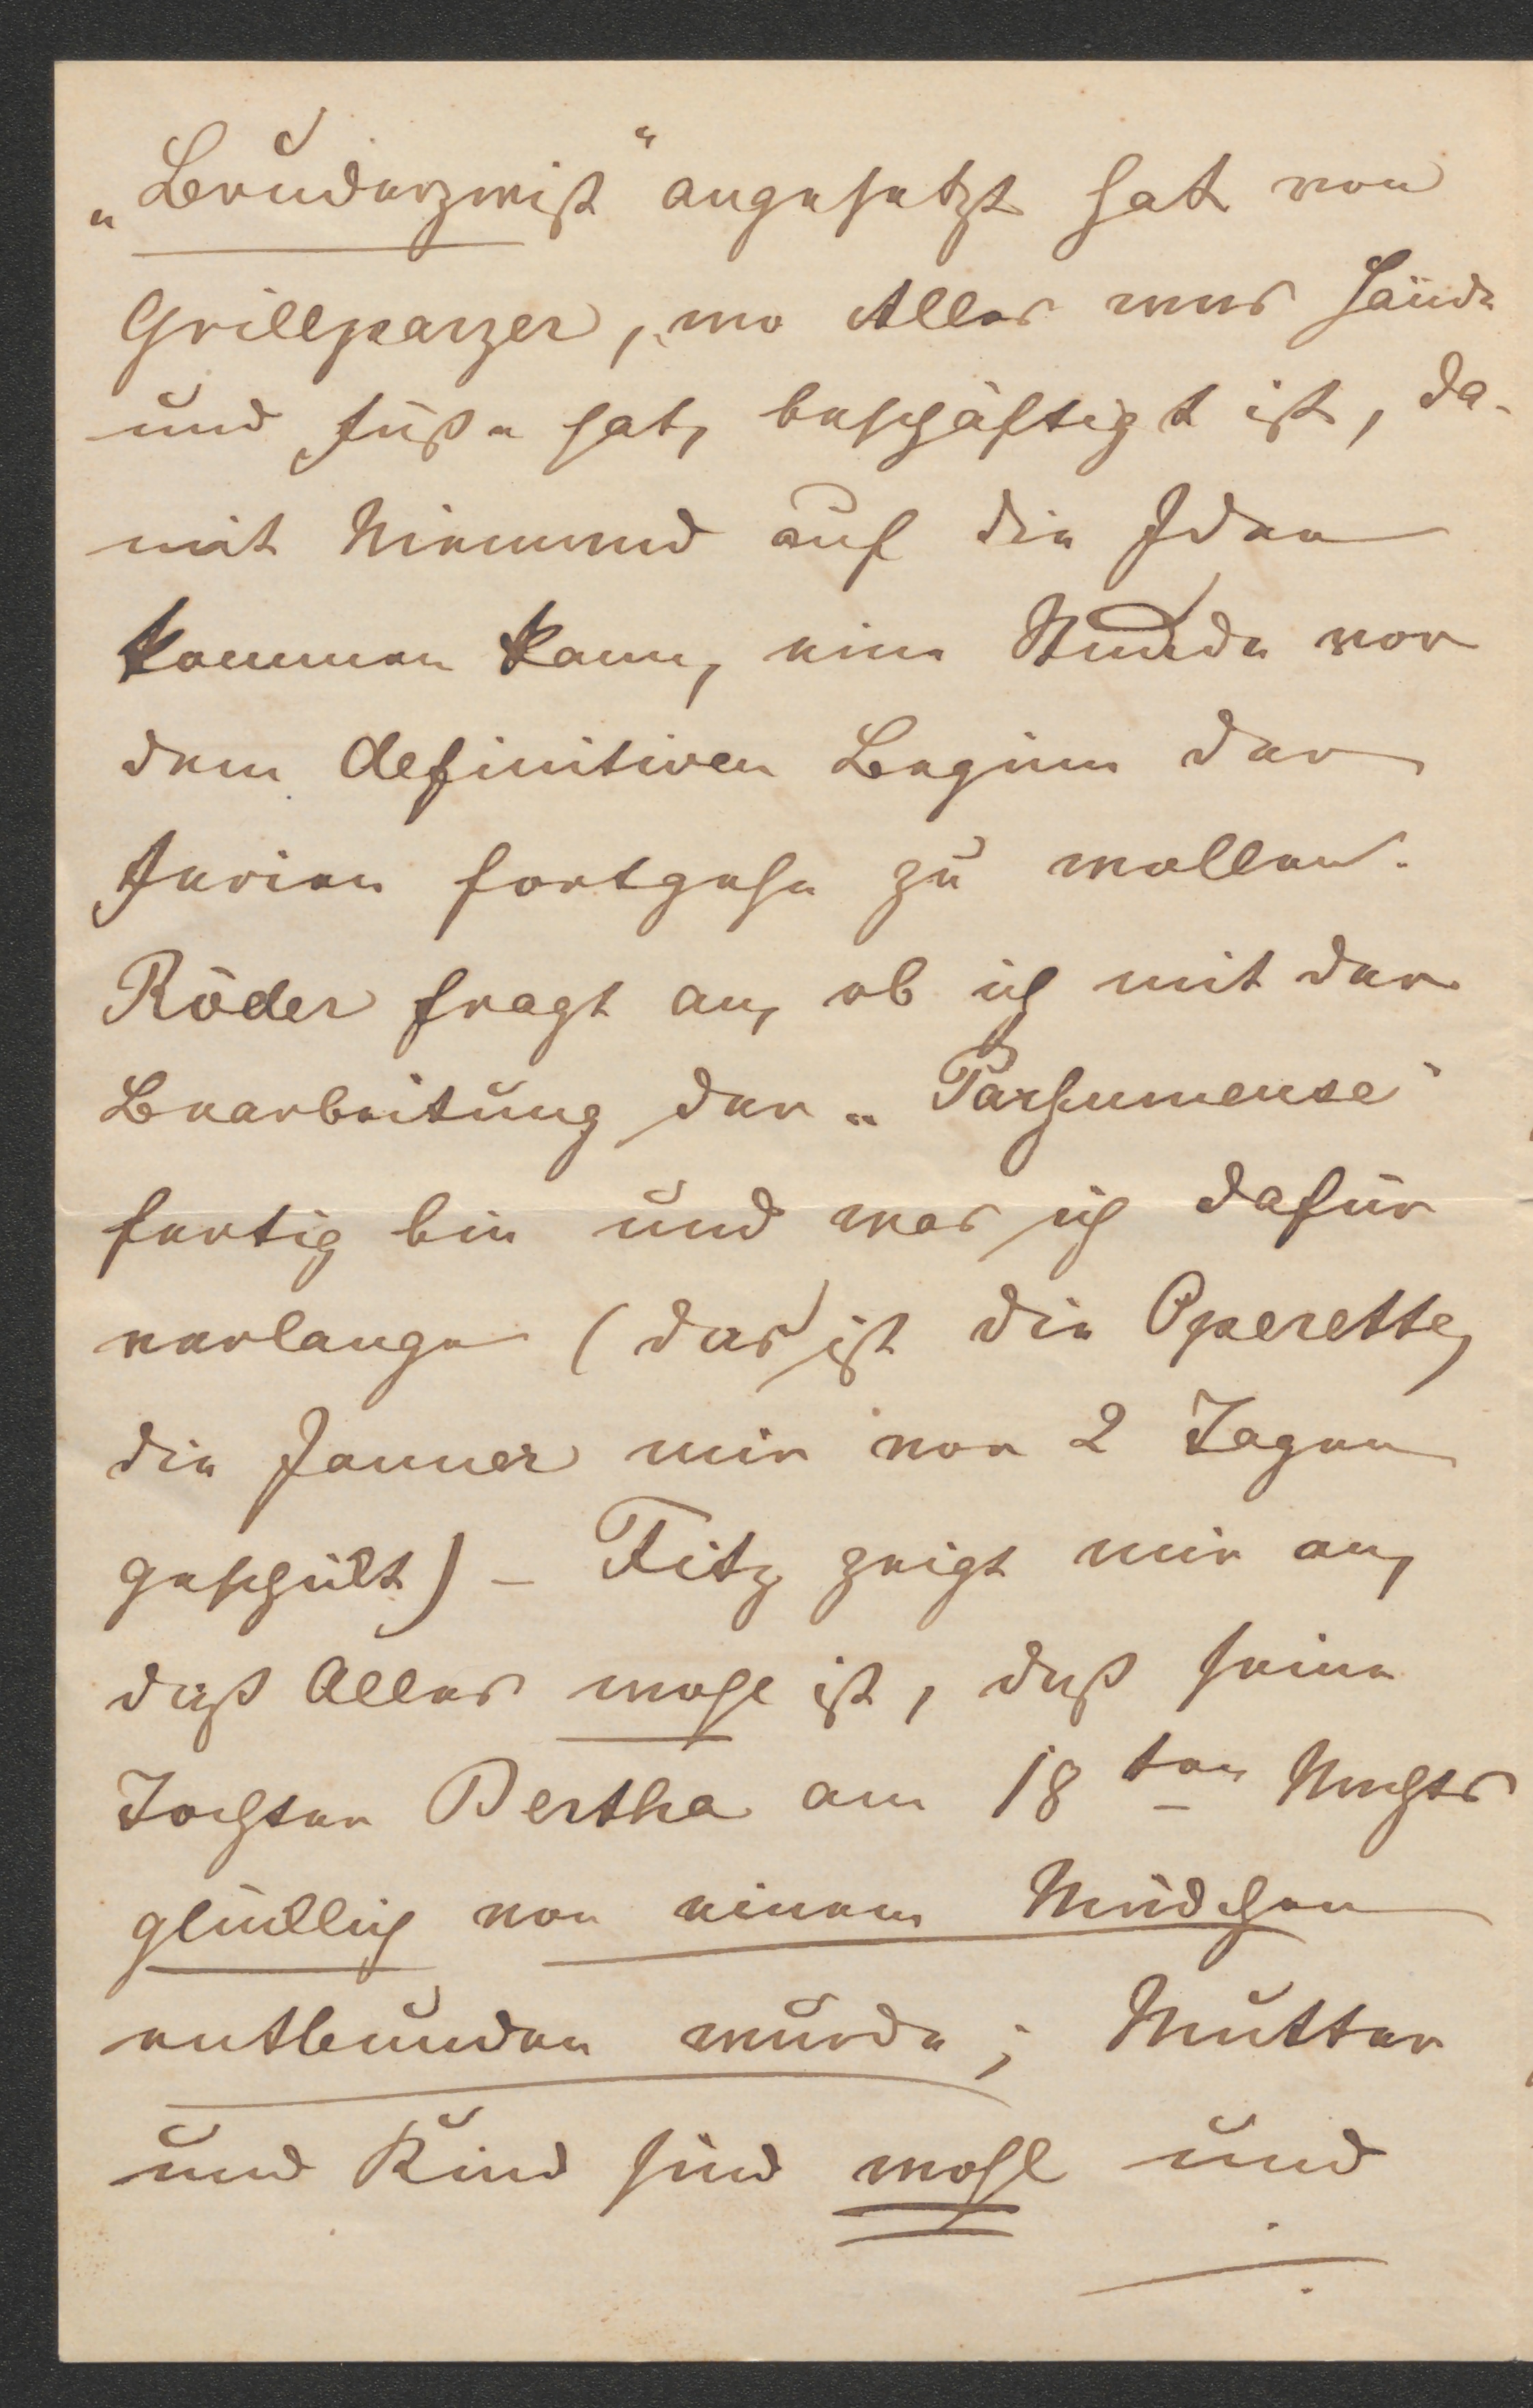 „Bruderzwist“ angesetzt hat von
Grillparzer, wo Alles was Hände
und Füße hat, beschäftigt ist, da-
mit Niemand auf die Idee
kommen kann, eine Stunde vor
dem definitiven Beginn der
Ferien fortgehn zu wollen.
Röder fragt an, ob ich mit der
Bearbeitung der „Parfumeuse“
fertig bin und was ich dafür
verlange (das ist die Operette,
die Jauner mir vor 2 Tagen
geschickt) – Titz zeigt mir an,
daß Alles wohl ist, daß seine
Tochter Bertha am 18ten Nachts
glücklich von einem Mädchen
entbunden wurde; Mutter
und Kind sind wohl und